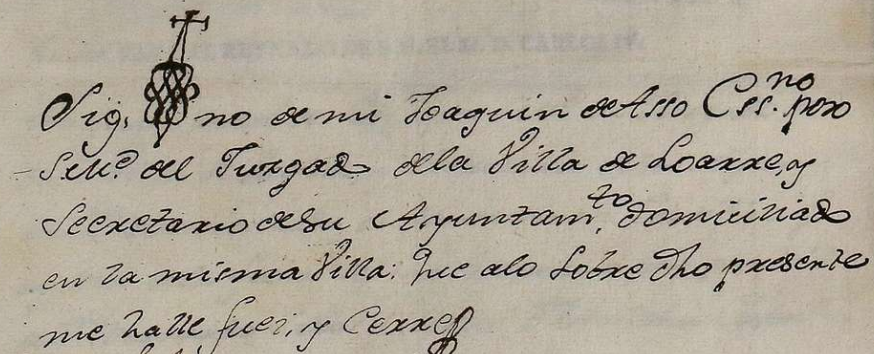 Sig. no de mi Joaquin de Asso Ess.no por
S.M.d del Juzgado de la Villa de Loarre, y
Secretario de su Ayuntam.to, domiciliado
en la misma Villa: que alo sobre dho presente
me halle fuei, y Cerre